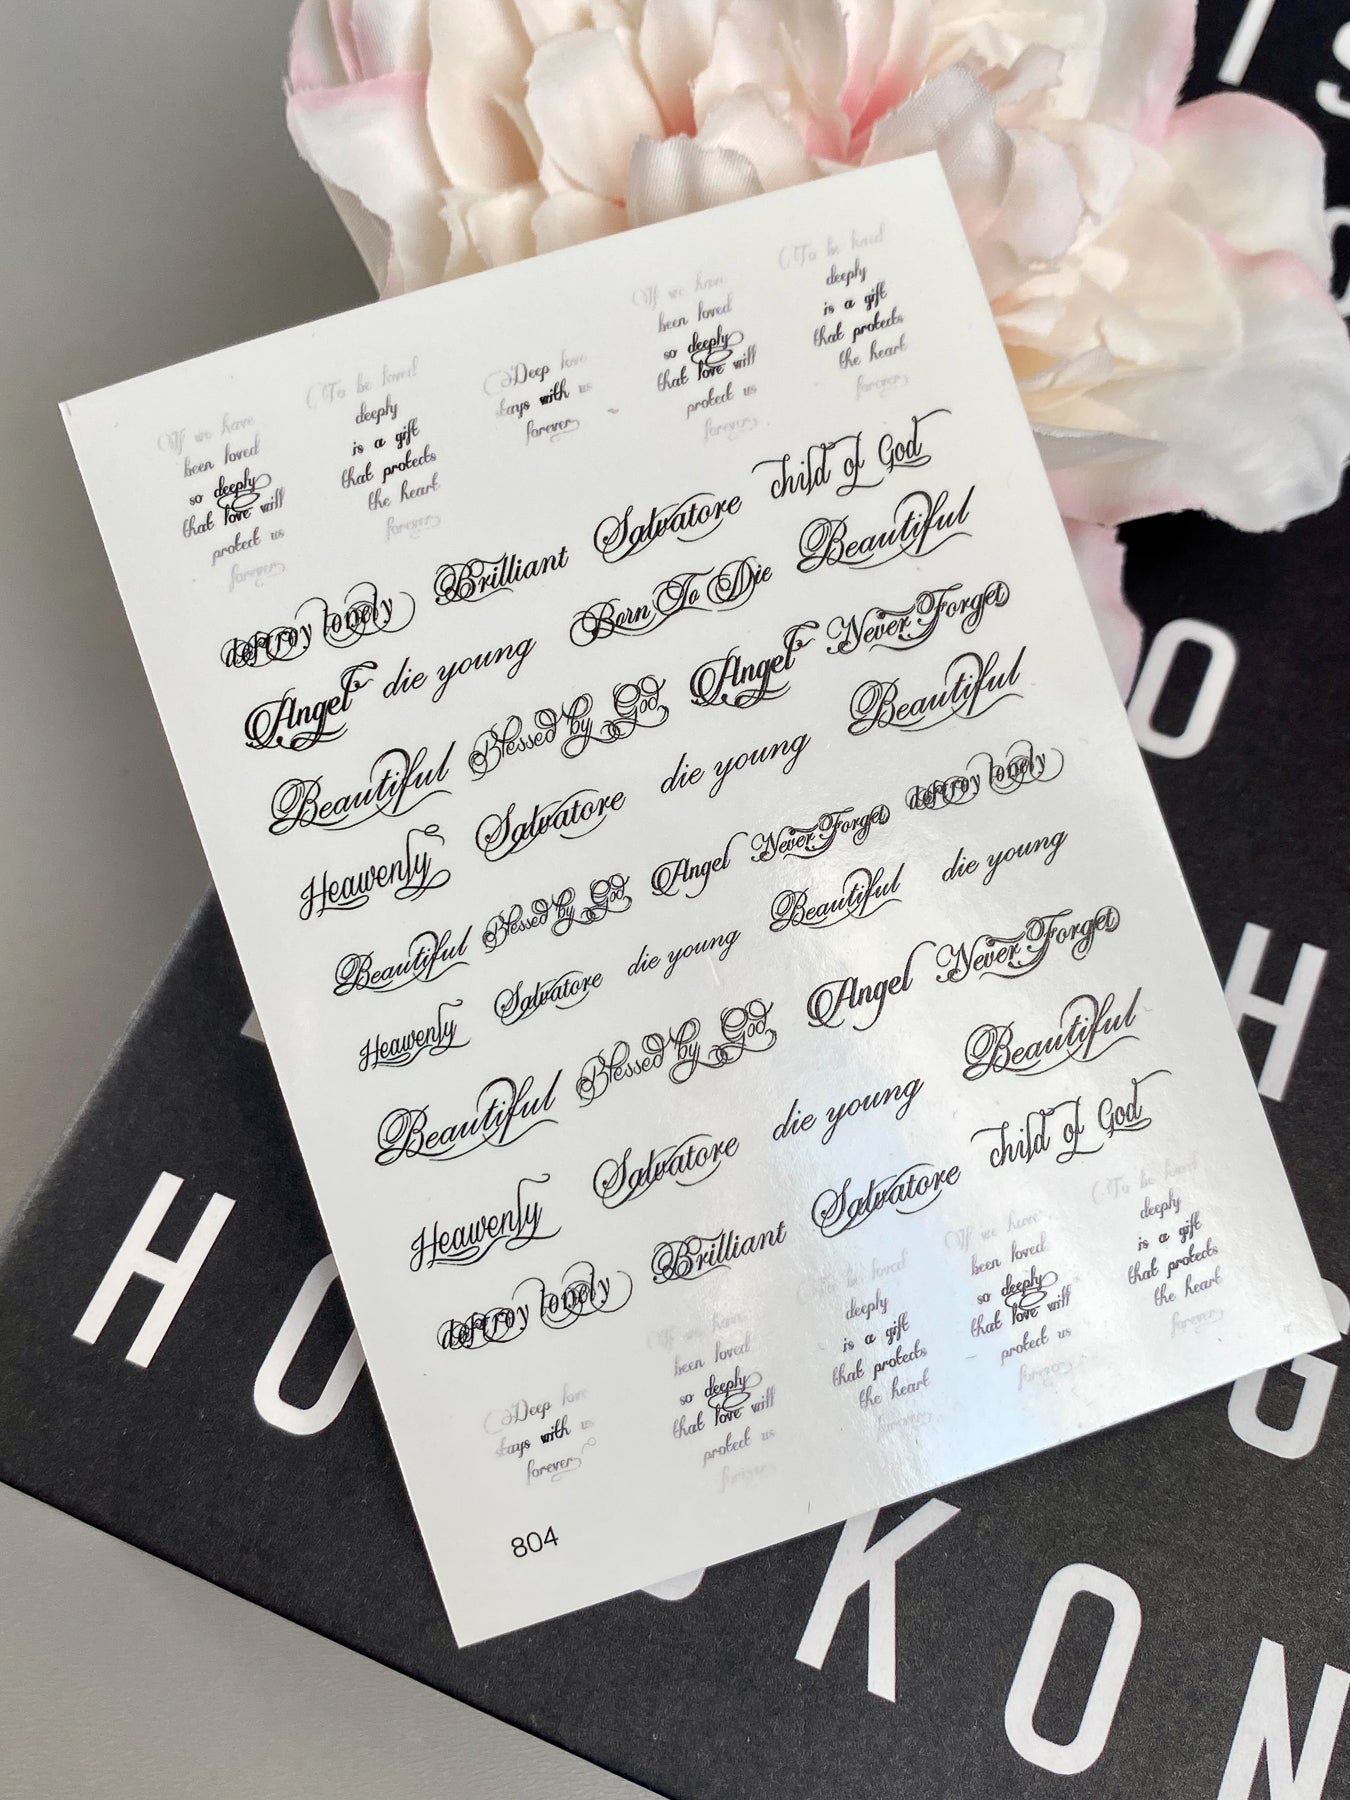 If we have
been loved
so deeply
that love will
protect us
forever
To be loved
deeply
is a gift
that protects
the heart
forever
Deep love
stays with us
forever
If we have
been loved
so deeply
that love will
protect us
forever
To be loved
deeply
is a gift
that protects
the heart
forever
destroy lonely Brilliant Salvatore child of God
Angel die young Born To Die Beautiful
Beautiful Blessed by God Angel Never Forget
Heavenly Salvatore die young Beautiful
Beautiful Blessed by God Angel Never Forget destroy lonely
Heavenly Salvatore die young Beautiful die young
Beautiful Blessed by God Angel Never Forget
Heavenly Salvatore die young Beautiful
destroy lonely Brilliant Salvatore child of God
Deep love
stays with us
forever
If we have
been loved
so deeply
that love will
protect us
forever
To be loved
deeply
is a gift
that protects
the heart
forever
If we have
been loved
so deeply
that love will
protect us
forever
To be loved
deeply
is a gift
that protects
the heart
forever
804
H O
K O N